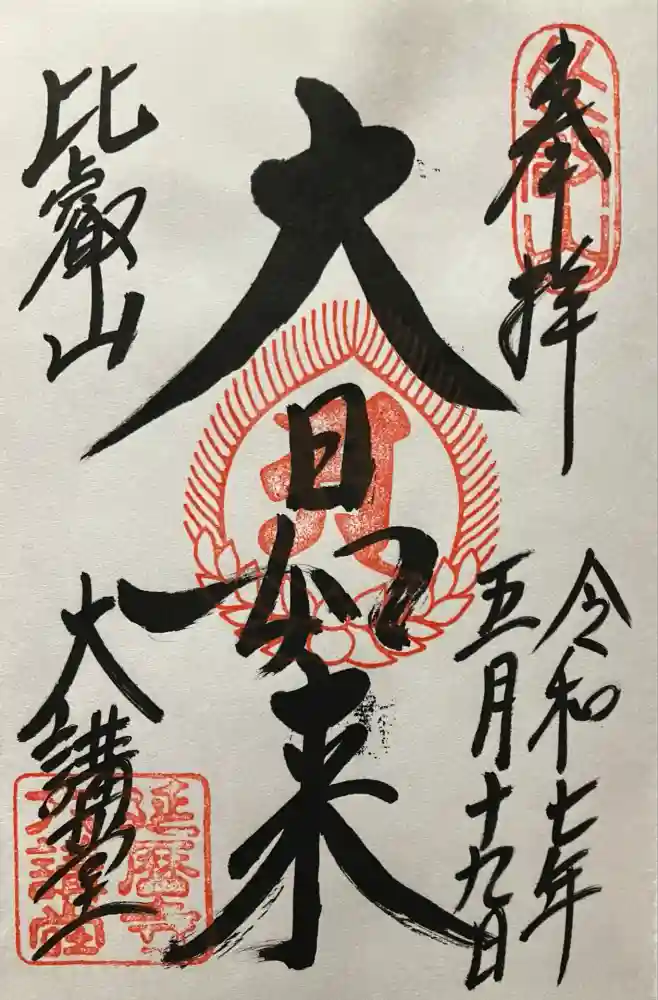 奉拝
令和七年
五月十九日
大日如来
比叡山
大講堂
延暦寺
大講堂